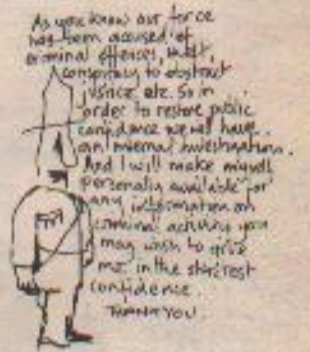 As you know our force
has been accused of
criminal offences, theft,
conspiracy to obstruct
justice etc. So in
order to restore public
confidence we will have
an internal investigation.
And I will make myself
personally available for
any information on
criminal activity you
may wish to give
me, in the strictest
confidence.
THANK YOU.